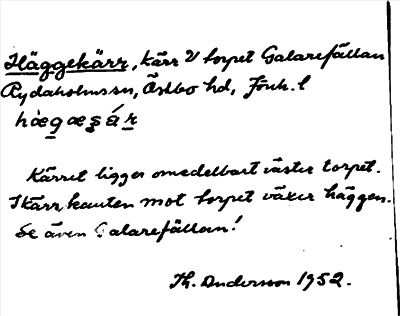 Häggekärr, kärr V torpet Galarefällan
Rydaholms sn, Östbo hd, Jönk. l
hægæşár
Kärret ligger omedelbart väster torpet.
I kärrkanten mot torpet växer häggen.
Se även Galarefällan!
Th. Andersson 1952.